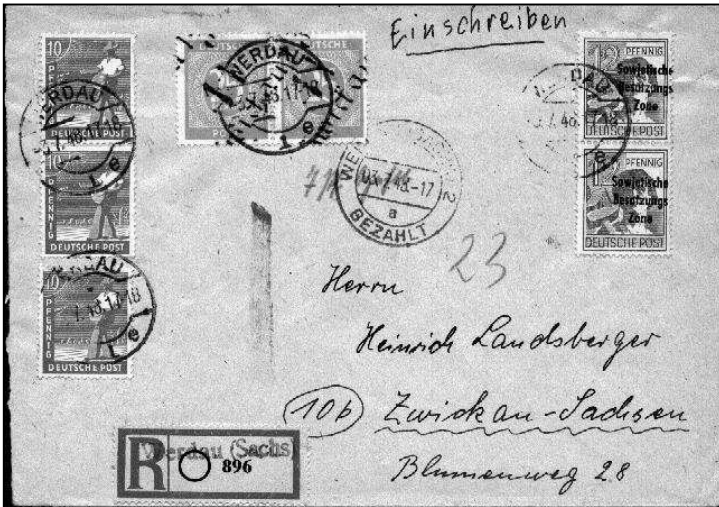 Einschreiben
10 PFENNIG
DEUTSCHE POST
10 PFENNIG
DEUTSCHE POST
10 PFENNIG
DEUTSCHE POST
WERDAU
WERDAU
WERDAU
1 e
12 PFENNIG
Sowjetische
Besatzungs
Zone
DEUTSCHE POST
PFENNIG
Sowjetische
Besatzungs
Zone
DEUTSCHE POST
03.7.48.-17
a
BEZAHLT
23
Herrn
Heinrich Landsberger
(10b) Zwickau-Sachsen
Blumenweg 28
Werdau (Sachs)
R 896